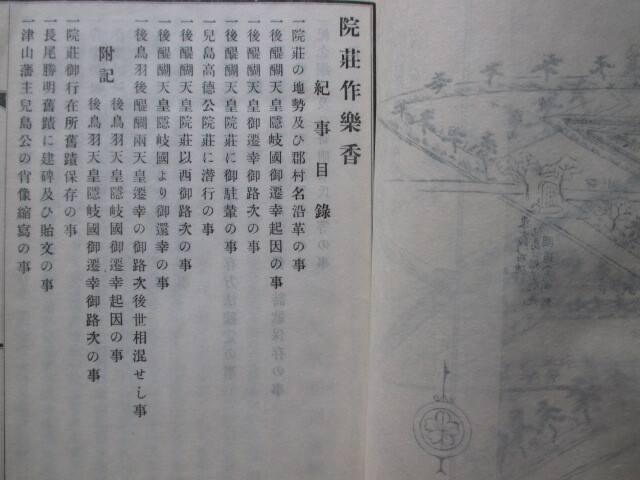 院莊作樂香
紀事目錄
一院莊の地勢及び郡村名沿革の事
一後醍醐天皇隱岐國御遷幸起因の事
一後醍醐天皇御遷幸御路次の事
一後醍醐天皇院莊に御駐輦の事
一兒島高德公院莊に潜行の事
一後醍醐天皇院莊以西御路次の事
一後醍醐天皇隱岐國より御還幸の事
一後鳥羽後醍醐兩天皇遷幸の御路次後世相混せし事
附記
後鳥羽天皇隱岐國御遷幸起因の事
後鳥羽天皇隱岐國御遷幸御路次の事
一院莊御行在所舊蹟保存の事
一長尾勝明舊蹟に建碑及ひ貽文の事
一津山藩主兒島公の肖像縮寫の事